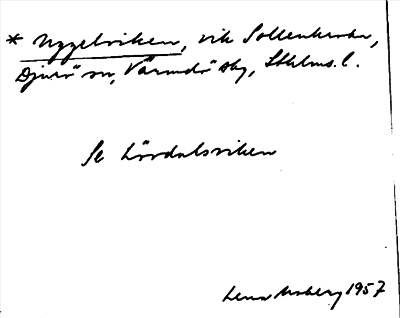 * Uggelviken, vik Sollenkroka,
Djurö sn, Värmdö skg, Sthlms l.
Se Lövdalsviken
Lena Moberg 1957